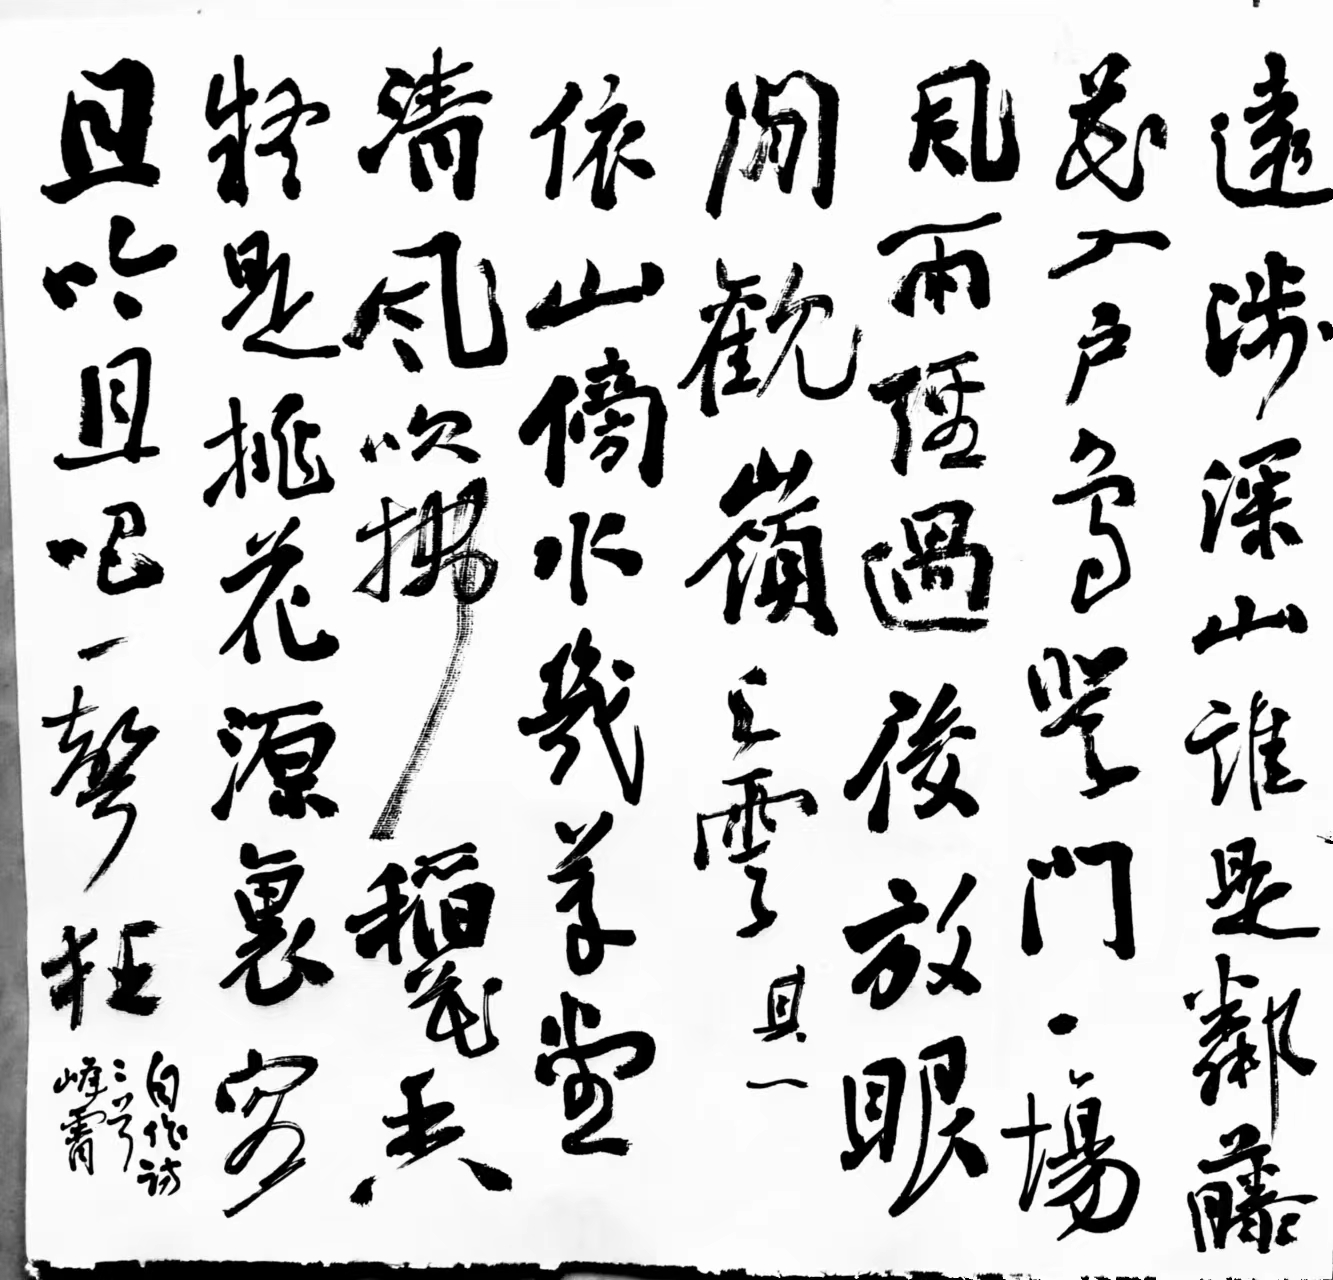 遠涉深山誰是鄰藤
花入戶鳥譽門一場
風雨經過後放眼
閒觀嶺上雲其一
依山傍水幾草堂
清風吹拂稻花香
疑是桃花源裏客
且吟且吧一聲狂
自作詩
三首
峰霄